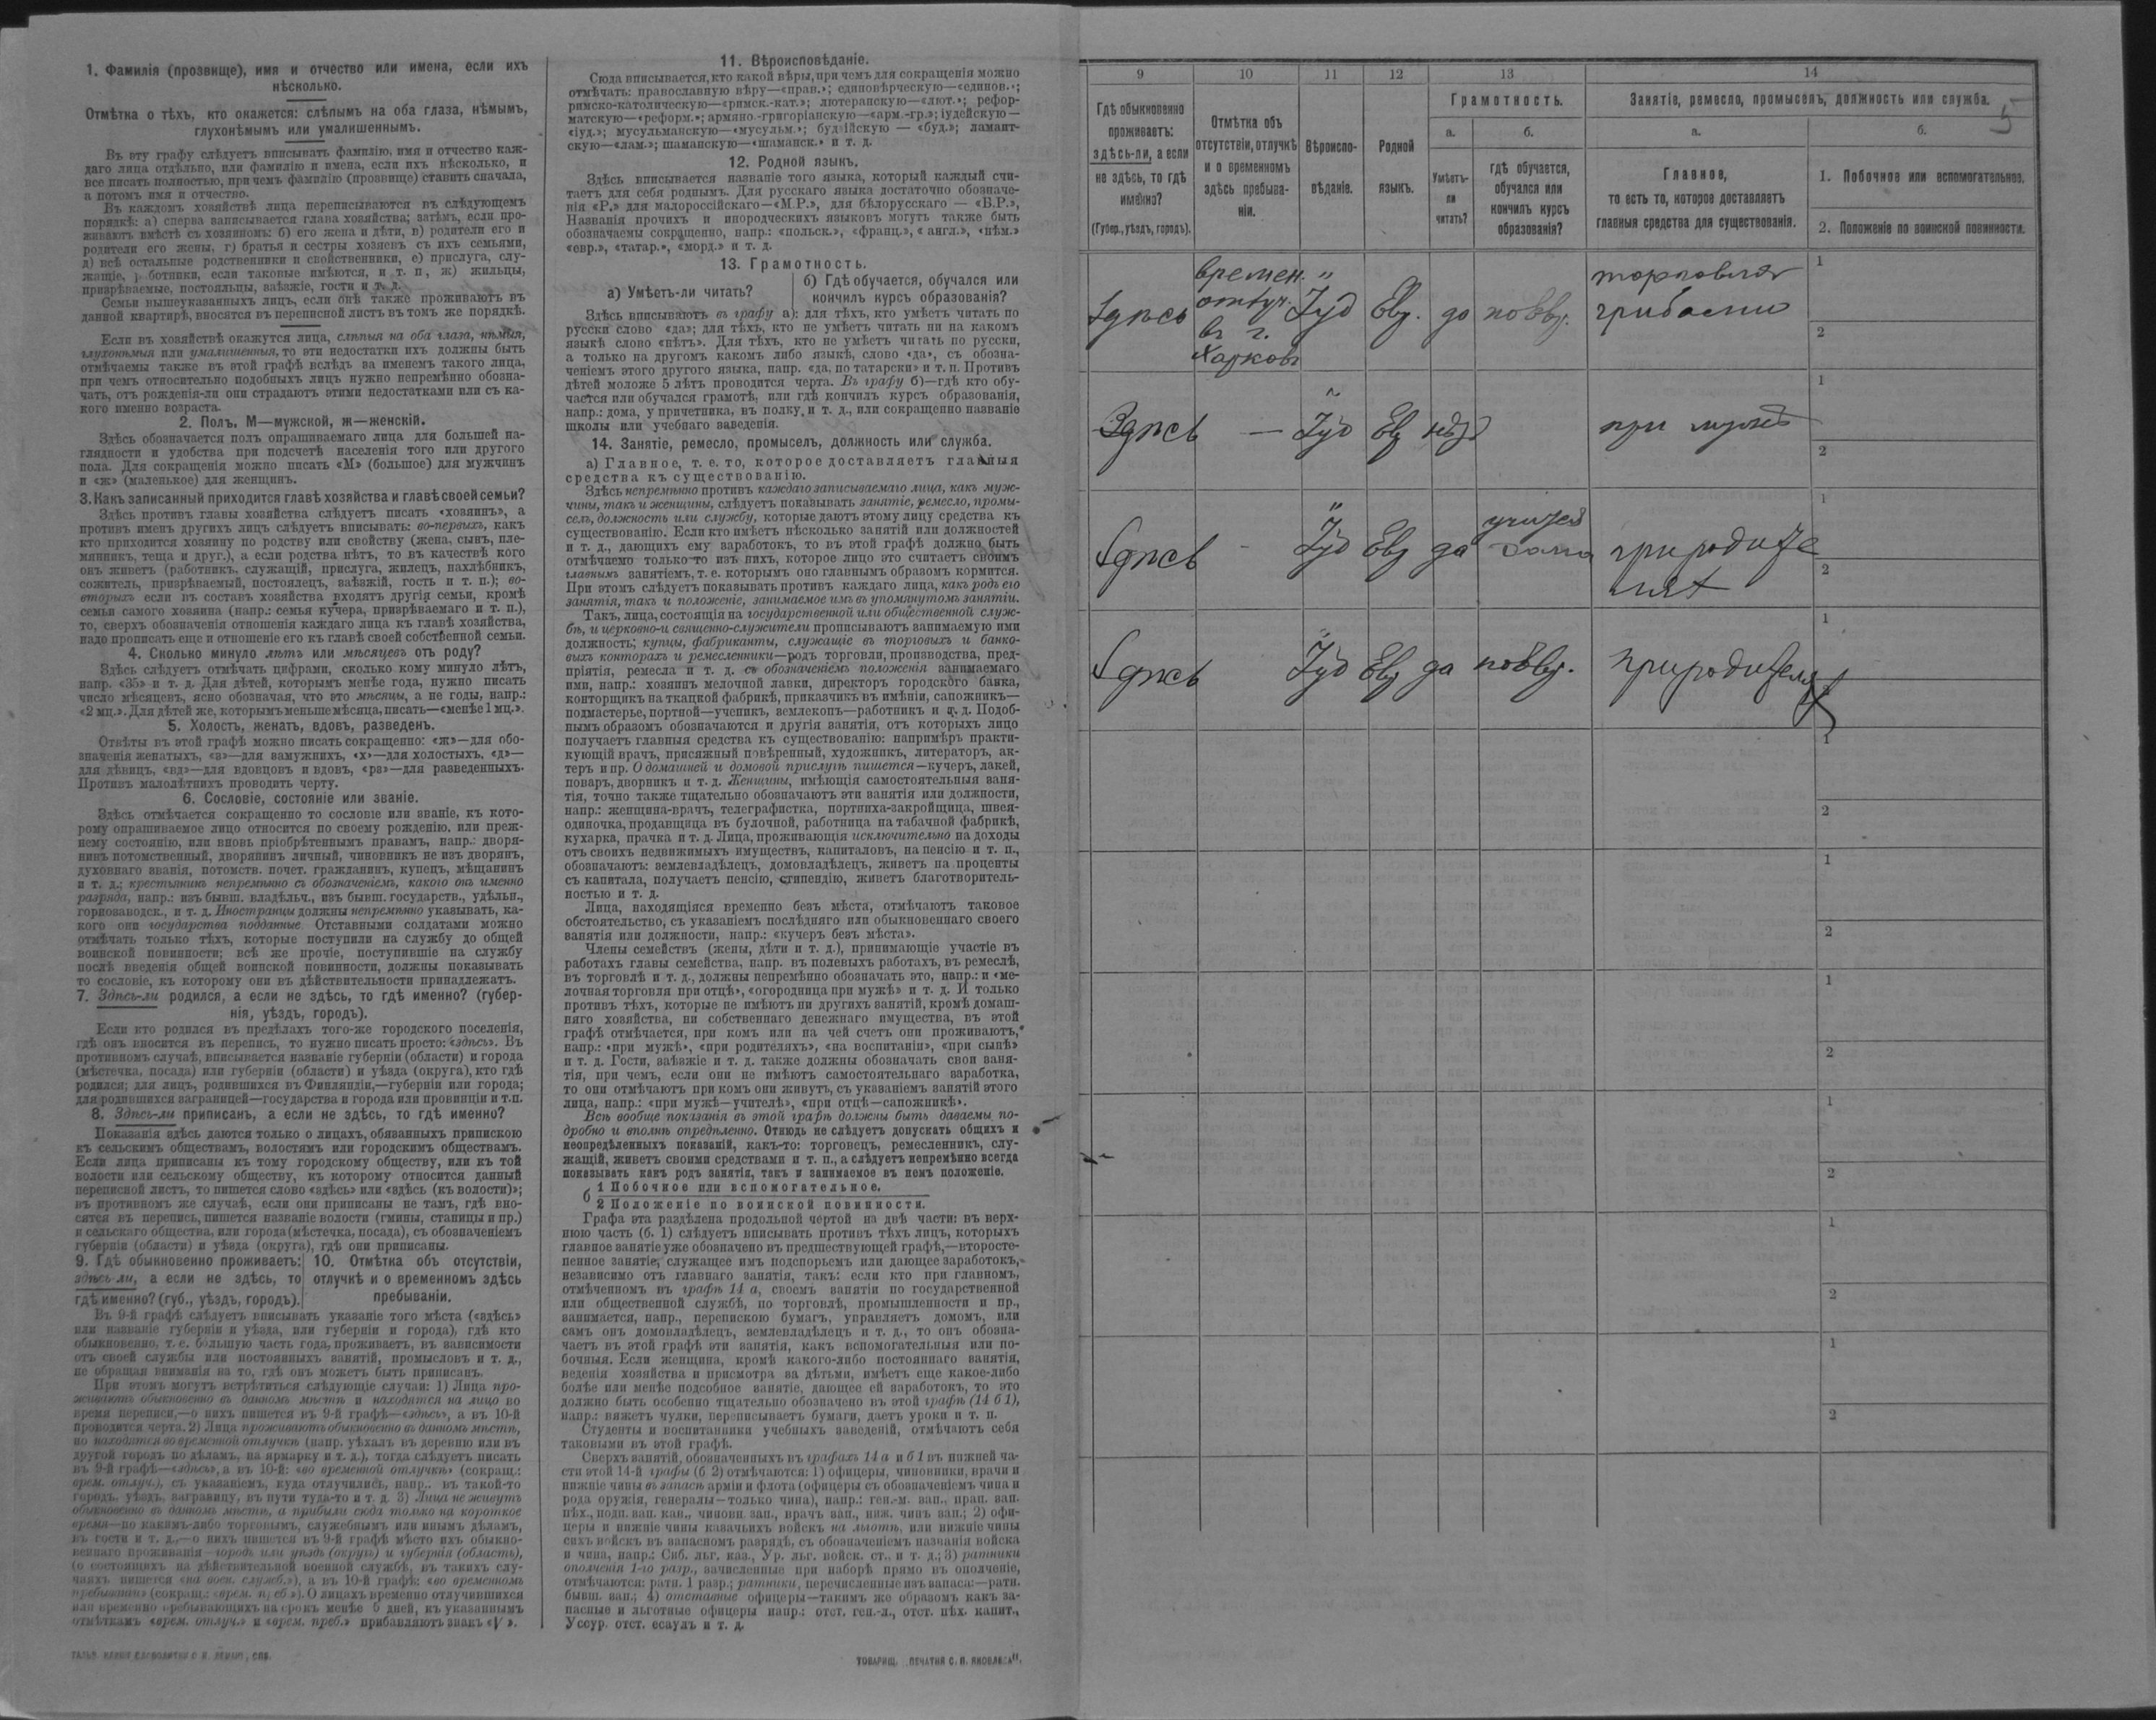 1. Фамилія (прозвище), имя и отчество или имена, если ихъ
нѣсколько.
Отмѣтка о тѣхъ, кто окажется: слѣпымъ на оба глаза, нѣмымъ,
глухонѣмымъ или умалишеннымъ.
Въ эту графу слѣдуетъ вписывать фамилію, имя и отчество каж-
даго лица отдѣльно, или фамилію и имена, если ихъ нѣсколько, и
все писать полностью, при чемъ фамилію (прозвище) ставить сначала,
а потомъ имя и отчество.
Въ каждомъ хозяйствѣ лица переписываются въ слѣдующемъ
порядкѣ: а) сперва записывается глава хозяйства; затѣмъ, если про-
живаютъ вмѣстѣ съ хозяиномъ: б) его жена и дѣти, в) родители его и
родители его жены, г) братья и сестры хозяевъ съ ихъ семьями,
д) всѣ остальные родственники и свойственники, е) прислуга, слу-
жащіе, работники, если таковые имѣются, и т. п., ж) жильцы,
призрѣваемые, постояльцы, заѣзжіе, гости и т. д.
Семьи вышеуказанныхъ лицъ, если онѣ также проживаютъ въ
данной квартирѣ, вносятся въ переписной листъ въ томъ же порядкѣ.
Если въ хозяйствѣ окажутся лица, слѣпыя на оба глаза, нѣмыя,
глухонѣмыя или умалишенныя, то эти недостатки ихъ должны быть
отмѣчаемы также въ этой графѣ вслѣдъ за именемъ такого лица,
при чемъ относительно подобныхъ лицъ нужно непремѣнно обозна-
чать, отъ рожденія-ли они страдаютъ этими недостатками или съ ка-
кого именно возраста.
2. Полъ, М—мужской, ж—женскій.
Здѣсь обозначается полъ опрашиваемаго лица для большей на-
глядности и удобства при подсчетѣ населенія того или другого
пола. Для сокращенія можно писать «М» (большое) для мужчинъ
и «ж» (маленькое) для женщинъ.
3. Какъ записанный приходится главѣ хозяйства и главѣ своей семьи?
Здѣсь противъ главы хозяйства слѣдуетъ писать «хозяинъ», а
противъ именъ другихъ лицъ слѣдуетъ вписывать: во-первыхъ, какъ
кто приходится хозяину по родству или свойству (жена, сынъ, пле-
мянникъ, теща и друг.), а если родства нѣтъ, то въ качествѣ кого
онъ живетъ (работникъ, служащій, прислуга, жилецъ, нахлѣбникъ,
сожитель, призрѣваемый, постоялецъ, заѣзжій, гость и т. п.); во-
вторыхъ если въ составъ хозяйства входятъ другія семьи, кромѣ
семьи самого хозяина (напр.: семья кучера, призрѣваемаго и т. п.),
то, сверхъ обозначенія отношенія каждаго лица къ главѣ хозяйства,
надо прописать еще и отношеніе его къ главѣ своей собственной семьи.
4. Сколько минуло лѣтъ или мѣсяцевъ отъ роду?
Здѣсь слѣдуетъ отмѣчать цифрами, сколько кому минуло лѣтъ,
напр. «35» и т. д. Для дѣтей, которымъ менѣе года, нужно писать
число мѣсяцевъ, ясно обозначая, что это мѣсяцы, а не годы, напр.:
«2 мц.». Для дѣтей же, которымъ меньше мѣсяца, писать—«менѣе 1 мц.».
5. Холостъ, женатъ, вдовъ, разведенъ.
Отвѣты въ этой графѣ можно писать сокращенно: «ж»—для обо-
значенія женатыхъ, «з»—для замужнихъ, «х»—для холостыхъ, «д»—
для дѣвицъ, «вд»—для вдовцовъ и вдовъ, «рз»—для разведенныхъ.
Противъ малолѣтнихъ проводить черту.
6. Сословіе, состояніе или званіе.
Здѣсь отмѣчается сокращенно то сословіе или званіе, къ кото-
рому опрашиваемое лицо относится по своему рожденію, или преж-
нему состоянію, или вновь пріобрѣтеннымъ правамъ, напр.: дворя-
нинъ потомственный, дворянинъ личный, чиновникъ не изъ дворянъ,
духовнаго званія, потомств. почет. гражданинъ, купецъ, мѣщанинъ
и т. д.; крестьянинъ непремѣнно съ обозначеніемъ, какого онъ именно
разряда, напр.: изъ бывш. владѣльч., изъ бывш. государств., удѣльн.,
горнозаводск., и т. д. Иностранцы должны непремѣнно указывать, ка-
кого они государства подданные. Отставными солдатами можно
отмѣчать только тѣхъ, которые поступили на службу до общей
воинской повинности; всѣ же прочіе, поступившіе на службу
послѣ введенія общей воинской повинности, должны показывать
то сословіе, къ которому они въ дѣйствительности принадлежатъ.
7. Здѣсь-ли родился, а если не здѣсь, то гдѣ именно? (губер-
нія, уѣздъ, городъ).
Если кто родился въ предѣлахъ того-же городского поселенія,
гдѣ онъ вносится въ перепись, то нужно писать просто: «здѣсь». Въ
противномъ случаѣ, вписывается названіе губерніи (области) и города
(мѣстечка, посада) или губерніи (области) и уѣзда (округа), кто гдѣ
родился; для лицъ, родившихся въ Финляндіи,—губерніи или города;
для родившихся заграницей—государства и города или провинціи и т.п.
8. Здѣсь-ли приписанъ, а если не здѣсь, то гдѣ именно?
Показанія здѣсь даются только о лицахъ, обязанныхъ припискою
къ сельскимъ обществамъ, волостямъ или городскимъ обществамъ.
Если лица приписаны къ тому городскому обществу, или къ той
волости или сельскому обществу, къ которому относится данный
переписной листъ, то пишется слово «здѣсь» или «здѣсь (къ волости)»;
въ противномъ же случаѣ, если они приписаны не тамъ, гдѣ вно-
сятся въ перепись, пишется названіе волости (гмины, станицы и пр.)
и сельскаго общества, или города (мѣстечка, посада), съ обозначеніемъ
губерніи (области) и уѣзда (округа), гдѣ они приписаны.
9. Гдѣ обыкновенно проживаетъ:
здѣсь-ли, а если не здѣсь, то
гдѣ именно? (губ., уѣздъ, городъ).
10. Отмѣтка объ отсутствіи,
отлучкѣ и о временномъ здѣсь
пребываніи.
Въ 9-й графѣ слѣдуетъ вписывать указаніе того мѣста («здѣсь»
или названіе губерніи и уѣзда, или губерніи и города), гдѣ кто
обыкновенно, т. е. большую часть года, проживаетъ, въ зависимости
отъ своей службы или постоянныхъ занятій, промысловъ и т. д.,
не обращая вниманія на то, гдѣ онъ можетъ быть приписанъ.
При этомъ могутъ встрѣтиться слѣдующіе случаи: 1) Лица про-
живаютъ обыкновенно въ данномъ мѣстѣ и находятся на лицо во
время переписи,—о нихъ пишется въ 9-й графѣ—«здѣсь», а въ 10-й
проводится черта. 2) Лица проживаютъ обыкновенно въ данномъ мѣстѣ,
но находятся во временной отлучкѣ (напр. уѣхалъ въ деревню или въ
другой городъ по дѣламъ, на ярмарку и т. д.), тогда слѣдуетъ писать
въ 9-й графѣ—«здѣсь», а въ 10-й: «во временной отлучкѣ» (сокращ.:
врем. отлуч.), съ указаніемъ, куда отлучились, напр.. въ такой-то
городъ, уѣздъ, заграницу, въ пути туда-то и т. д. 3) Лица не живутъ
обыкновенно въ данномъ мѣстѣ, а прибыли сюда только на короткое
время—по какимъ-либо торговымъ, служебнымъ или инымъ дѣламъ,
въ гости и т. д.,—о нихъ пишется въ 9-й графѣ мѣсто ихъ обыкно-
веннаго проживанія—городъ или уѣздъ (округъ) и губернія (область),
(о состоящихъ на дѣйствительной военной службѣ, въ такихъ слу-
чаяхъ пишется «на воен. служб.»), а въ 10-й графѣ: «во временномъ
пребываніи» (сокращ.: «врем. преб.»). О лицахъ временно отлучившихся
или временно пребывающихъ на срокъ менѣе 5 дней, къ указаннымъ
отмѣткамъ «врем. отлуч.» и «врем. преб.» прибавляютъ знакъ «V».
11. Вѣроисповѣданіе.
Сюда вписывается, кто какой вѣры, при чемъ для сокращенія можно
отмѣчать: православную вѣру—«прав.»; единовѣрческую—«единов.»;
римско-католическую—«римск.-кат.»; лютеранскую—«лют.»; рефор-
матскую—«реформ.»; армяно.-григоріанскую—«арм.-гр.»; іудейскую—
«іуд.»; мусульманскую—«мусульм.»; буддійскую — «буд.»; ламаит-
скую—«лам.»; шаманскую—«шаманск.» и т. д.
12. Родной языкъ.
Здѣсь вписывается названіе того языка, который каждый счи-
таетъ для себя роднымъ. Для русскаго языка достаточно обозначе-
нія «Р.» для малороссійскаго—«М.Р.», для бѣлорусскаго — «Б.Р.»,
Названія прочихъ и инородческихъ языковъ могутъ также быть
обозначаемы сокращенно, напр.: «польск.», «франц.», « англ.», «нѣм.»
«евр.», «татар.», «морд.» и т. д.
13. Грамотность.
а) Умѣетъ-ли читать?
б) Гдѣ обучается, обучался или
кончилъ курсъ образованія?
Здѣсь вписываютъ въ графу а): для тѣхъ, кто умѣетъ читать по
русски слово «да»; для тѣхъ, кто не умѣетъ читать ни на какомъ
языкѣ слово «нѣтъ». Для тѣхъ, кто не умѣетъ читать по русски,
а только на другомъ какомъ либо языкѣ, слово «да», съ обозна-
ченіемъ этого другого языка, напр. «да, по татарски» и т. п. Противъ
дѣтей моложе 5 лѣтъ проводится черта. Въ графу б)—гдѣ кто обу-
чается или обучался грамотѣ, или гдѣ кончилъ курсъ образованія,
напр.: дома, у причетника, въ полку, и т. д., или сокращенно названіе
школы или учебнаго заведенія.
14. Занятіе, ремесло, промыселъ, должность или служба.
а) Главное, т. е. то, которое доставляетъ главныя
средства къ существованію.
Здѣсь непремѣнно противъ каждаго записываемаго лица, какъ муж-
чины, такъ и женщины, слѣдуетъ показывать занятіе, ремесло, промы-
селъ, должность или службу, которые даютъ этому лицу средства къ
существованію. Если кто имѣетъ нѣсколько занятій или должностей
и т. д., дающихъ ему заработокъ, то въ этой графѣ должно быть
отмѣчаемо только-то изъ нихъ, которое лицо это считаетъ своимъ
главнымъ занятіемъ, т. е. которымъ оно главнымъ образомъ кормится.
При этомъ слѣдуетъ показывать противъ каждаго лица, какъ родъ его
занятія, такъ и положеніе, занимаемое имъ въ упомянутомъ занятіи.
Такъ, лица, состоящія на государственной или общественной служ-
бѣ, и церковно-и священно-служители прописываютъ занимаемую ими
должность; купцы, фабриканты, служащіе въ торговыхъ и банко-
выхъ конторахъ и ремесленники—родъ торговли, производства, пред-
пріятія, ремесла и т. д. съ обозначеніемъ положенія занимаемаго
ими, напр.: хозяинъ мелочной лавки, директоръ городскаго банка,
конторщикъ на ткацкой фабрикѣ, приказчикъ въ имѣніи, сапожникъ—
подмастерье, портной—ученикъ, землекопъ—работникъ и т. д. Подоб-
нымъ образомъ обозначаются и другія занятія, отъ которыхъ лицо
получаетъ главныя средства къ существованію: напримѣръ практи-
кующій врачъ, присяжный повѣренный, художникъ, литераторъ, ак-
теръ и пр. О домашней и домовой прислугѣ пишется—кучеръ, лакей,
поваръ, дворникъ и т. д. Женщины, имѣющія самостоятельныя заня-
тія, точно также тщательно обозначаютъ эти занятія или должности,
напр.: женщина-врачъ, телеграфистка, портниха-закройщица, швея-
одиночка, продавщица въ булочной, работница на табачной фабрикѣ,
кухарка, прачка и т. д. Лица, проживающія исключительно на доходы
отъ своихъ недвижимыхъ имуществъ, капиталовъ, на пенсію и т. п.,
обозначаютъ: землевладѣлецъ, домовладѣлецъ, живетъ на проценты
съ капитала, получаетъ пенсію, стипендію, живетъ благотворитель-
ностью и т. д.
Лица, находящіяся временно безъ мѣста, отмѣчаютъ таковое
обстоятельство, съ указаніемъ послѣдняго или обыкновеннаго своего
занятія или должности, напр.: «кучеръ безъ мѣста».
Члены семействъ (жены, дѣти и т. д.), принимающіе участіе въ
работахъ главы семейства, напр. въ полевыхъ работахъ, въ ремеслѣ,
въ торговлѣ и т. д., должны непремѣнно обозначать это, напр.: и «ме-
лочная торговля при отцѣ», «огородница при мужѣ» и т. д. И только
противъ тѣхъ, которые не имѣютъ ни другихъ занятій, кромѣ домаш-
няго хозяйства, ни собственнаго денежнаго имущества, въ этой
графѣ отмѣчается, при комъ или на чей счетъ они проживаютъ,
напр.: «при мужѣ», «при родителяхъ», «на воспитаніи», «при сынѣ»
и т. д. Гости, заѣзжіе и т. д. также должны обозначать свои заня-
тія, при чемъ, если они не имѣютъ самостоятельнаго заработка,
то они отмѣчаютъ при комъ они живутъ, съ указаніемъ занятій этого
лица, напр.: «при мужѣ—учителѣ», «при отцѣ—сапожникѣ».
Всѣ вообще показанія въ этой графѣ должны быть даваемы по-
дробно и вполнѣ опредѣленно. Отнюдь не слѣдуетъ допускать общихъ и
неопредѣленныхъ показаній, какъ-то: торговецъ, ремесленникъ, слу-
жащій, живетъ своими средствами и т. п., а слѣдуетъ непремѣнно всегда
показывать какъ родъ занятія, такъ и занимаемое въ немъ положеніе.
б 1 Побочное или вспомогательное.
2 Положеніе по воинской повинности.
Графа эта раздѣлена продольной чертой на двѣ части: въ верх-
нюю часть (б. 1) слѣдуетъ вписывать противъ тѣхъ лицъ, которыхъ
главное занятіе уже обозначено въ предшествующей графѣ,—второсте-
пенное занятіе, служащее имъ подспорьемъ или дающее заработокъ,
независимо отъ главнаго занятія, такъ: если кто при главномъ,
отмѣченномъ въ графѣ 14 а, своемъ занятіи по государственной
или общественной службѣ, по торговлѣ, промышленности и пр.,
занимается, напр., перепискою бумагъ, управляетъ домомъ, или
самъ онъ домовладѣлецъ, землевладѣлецъ и т. д., то онъ обозна-
чаетъ въ этой графѣ эти занятія, какъ вспомогательныя или по-
бочныя. Если женщина, кромѣ какого-либо постояннаго занятія,
веденія хозяйства и присмотра за дѣтьми, имѣетъ еще какое-либо
болѣе или менѣе подсобное занятіе, дающее ей заработокъ, то это
должно быть особенно тщательно обозначено въ этой графѣ (14 б 1),
напр.: вяжетъ чулки, переписываетъ бумаги, даетъ уроки и т. п.
Студенты и воспитанники учебныхъ заведеній, отмѣчаютъ себя
таковыми въ этой графѣ.
Сверхъ занятій, обозначенныхъ въ графахъ 14 а и б 1 въ нижней ча-
сти этой 14-й графы (б 2) отмѣчаются: 1) офицеры, чиновники, врачи и
нижніе чины въ запасѣ арміи и флота (офицеры съ обозначеніемъ чина и
рода оружія, генералы—только чина), напр.: ген.-м. зап., прап. зап.
пѣх., подп. зап. кав., чиновн. зап., врачъ зап., ниж. чинъ зап.; 2) офи-
церы и нижніе чины казачьихъ войскъ на льготѣ, или нижніе чины
сихъ войскъ въ запасномъ разрядѣ, съ обозначеніемъ названія войска
и чина, напр.: Сиб. льг. каз., Ур. льг. войск. ст., и т. д.; 3) ратники
ополченія 1-го разр., зачисленные при наборѣ прямо въ ополченіе,
отмѣчаются: ратн. 1 разр.; ратники, перечисленные изъ запаса:—ратн.
бывш. зап.; 4) отставные офицеры—такимъ же образомъ какъ за-
пасные и льготные офицеры напр.: отст. ген.-л., отст. пѣх. капит.,
Уссур. отст. есаулъ и т. д.
ТОВАРИЩ. „ПЕЧАТНЯ С. П. ЯКОВЛЕВА".
9 10 11 12 13 14
5
Гдѣ обыкновенно
проживаетъ:
здѣсь-ли, а если
не здѣсь, то гдѣ
именно?
(Губер., уѣздъ, городъ).
Отмѣтка объ
отсутствіи, отлучкѣ
и о временномъ
здѣсь пребыва-
ніи.
Вѣроиспо-
вѣданіе.
Родной
языкъ.
Грамотность.
а. б.
Умѣетъ-
ли
читать?
гдѣ обучается,
обучался или
кончилъ курсъ
образованія?
Занятіе, ремесло, промыселъ, должность или служба.
а. б.
Главное,
то есть то, которое доставляетъ
главныя средства для существованія.
1. Побочное или вспомогательное.
2. Положеніе по воинской повинности.
времен. торговля
здпсь отлуч. Іуд Евр. да грибами
в г.
Харковъ
1
2
Здпсь — Іуд Евр нѣт при мужѣ
1
2
здпсь - Іуд Евр да дома при родите
лях
1
2
здпсь Іуд Евр да при родителях
1
2
1
2
1
2
1
2
1
2
1
2
1
2